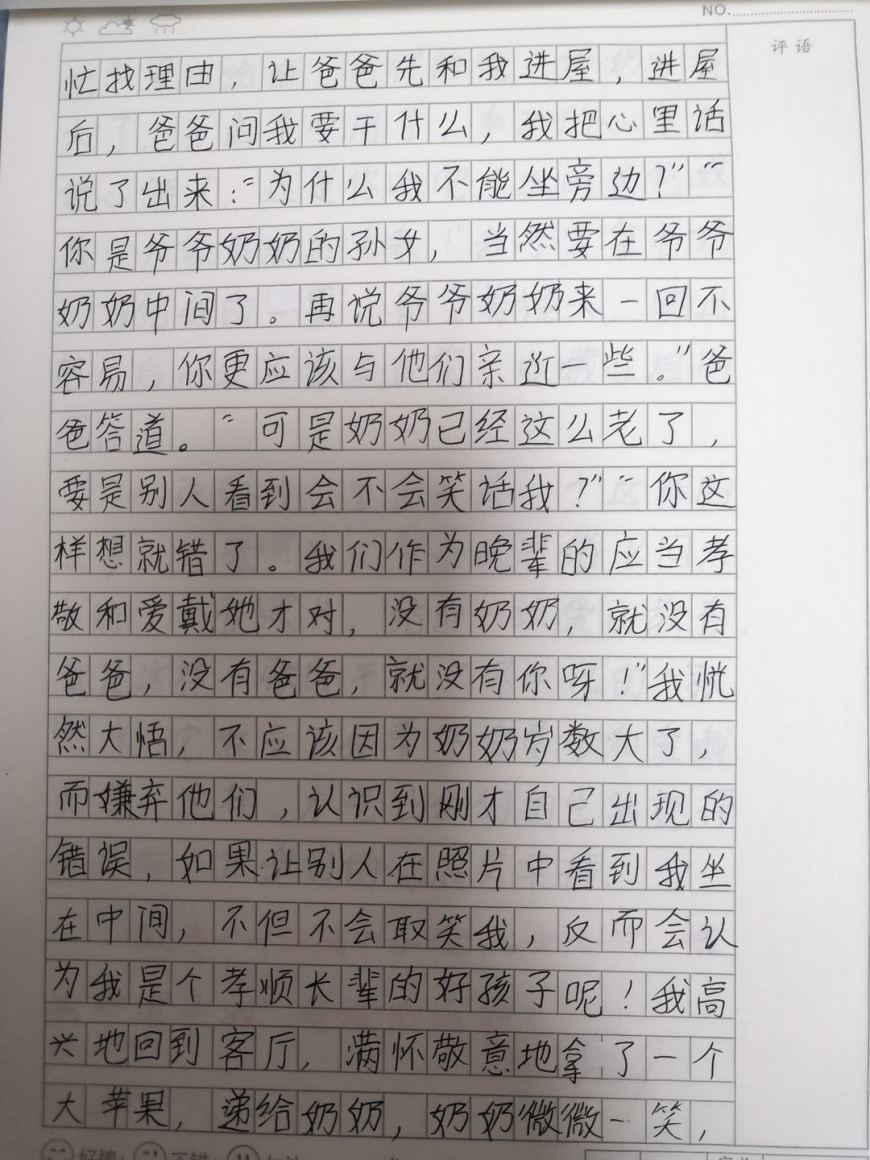 NO.
评语
忙找理由，让爸爸先和我进屋，进屋
后，爸爸问我要干什么，我把心里话
说了出来：“为什么我不能坐旁边？”“
你是爷爷奶奶的孙女，当然要在爷爷
奶奶中间了。再说爷爷奶奶来一回不
容易，你更应该与他们亲近一些。”爸
爸答道。“可是奶奶已经这么老了，
要是别人看到会不会笑话我？”“你这
样想就错了。我们作为晚辈的应当孝
敬和爱戴她才对，没有奶奶，就没有
爸爸，没有爸爸，就没有你呀！”我恍
然大悟，不应该因为奶奶岁数大了，
而嫌弃他们，认识到刚才自己出现的
错误，如果让别人在照片中看到我坐
在中间，不但不会取笑我，反而会认
为我是个孝顺长辈的好孩子呢！我高
兴地回到客厅，满怀敬意地拿了一个
大苹果，递给奶奶，奶奶微微一笑，